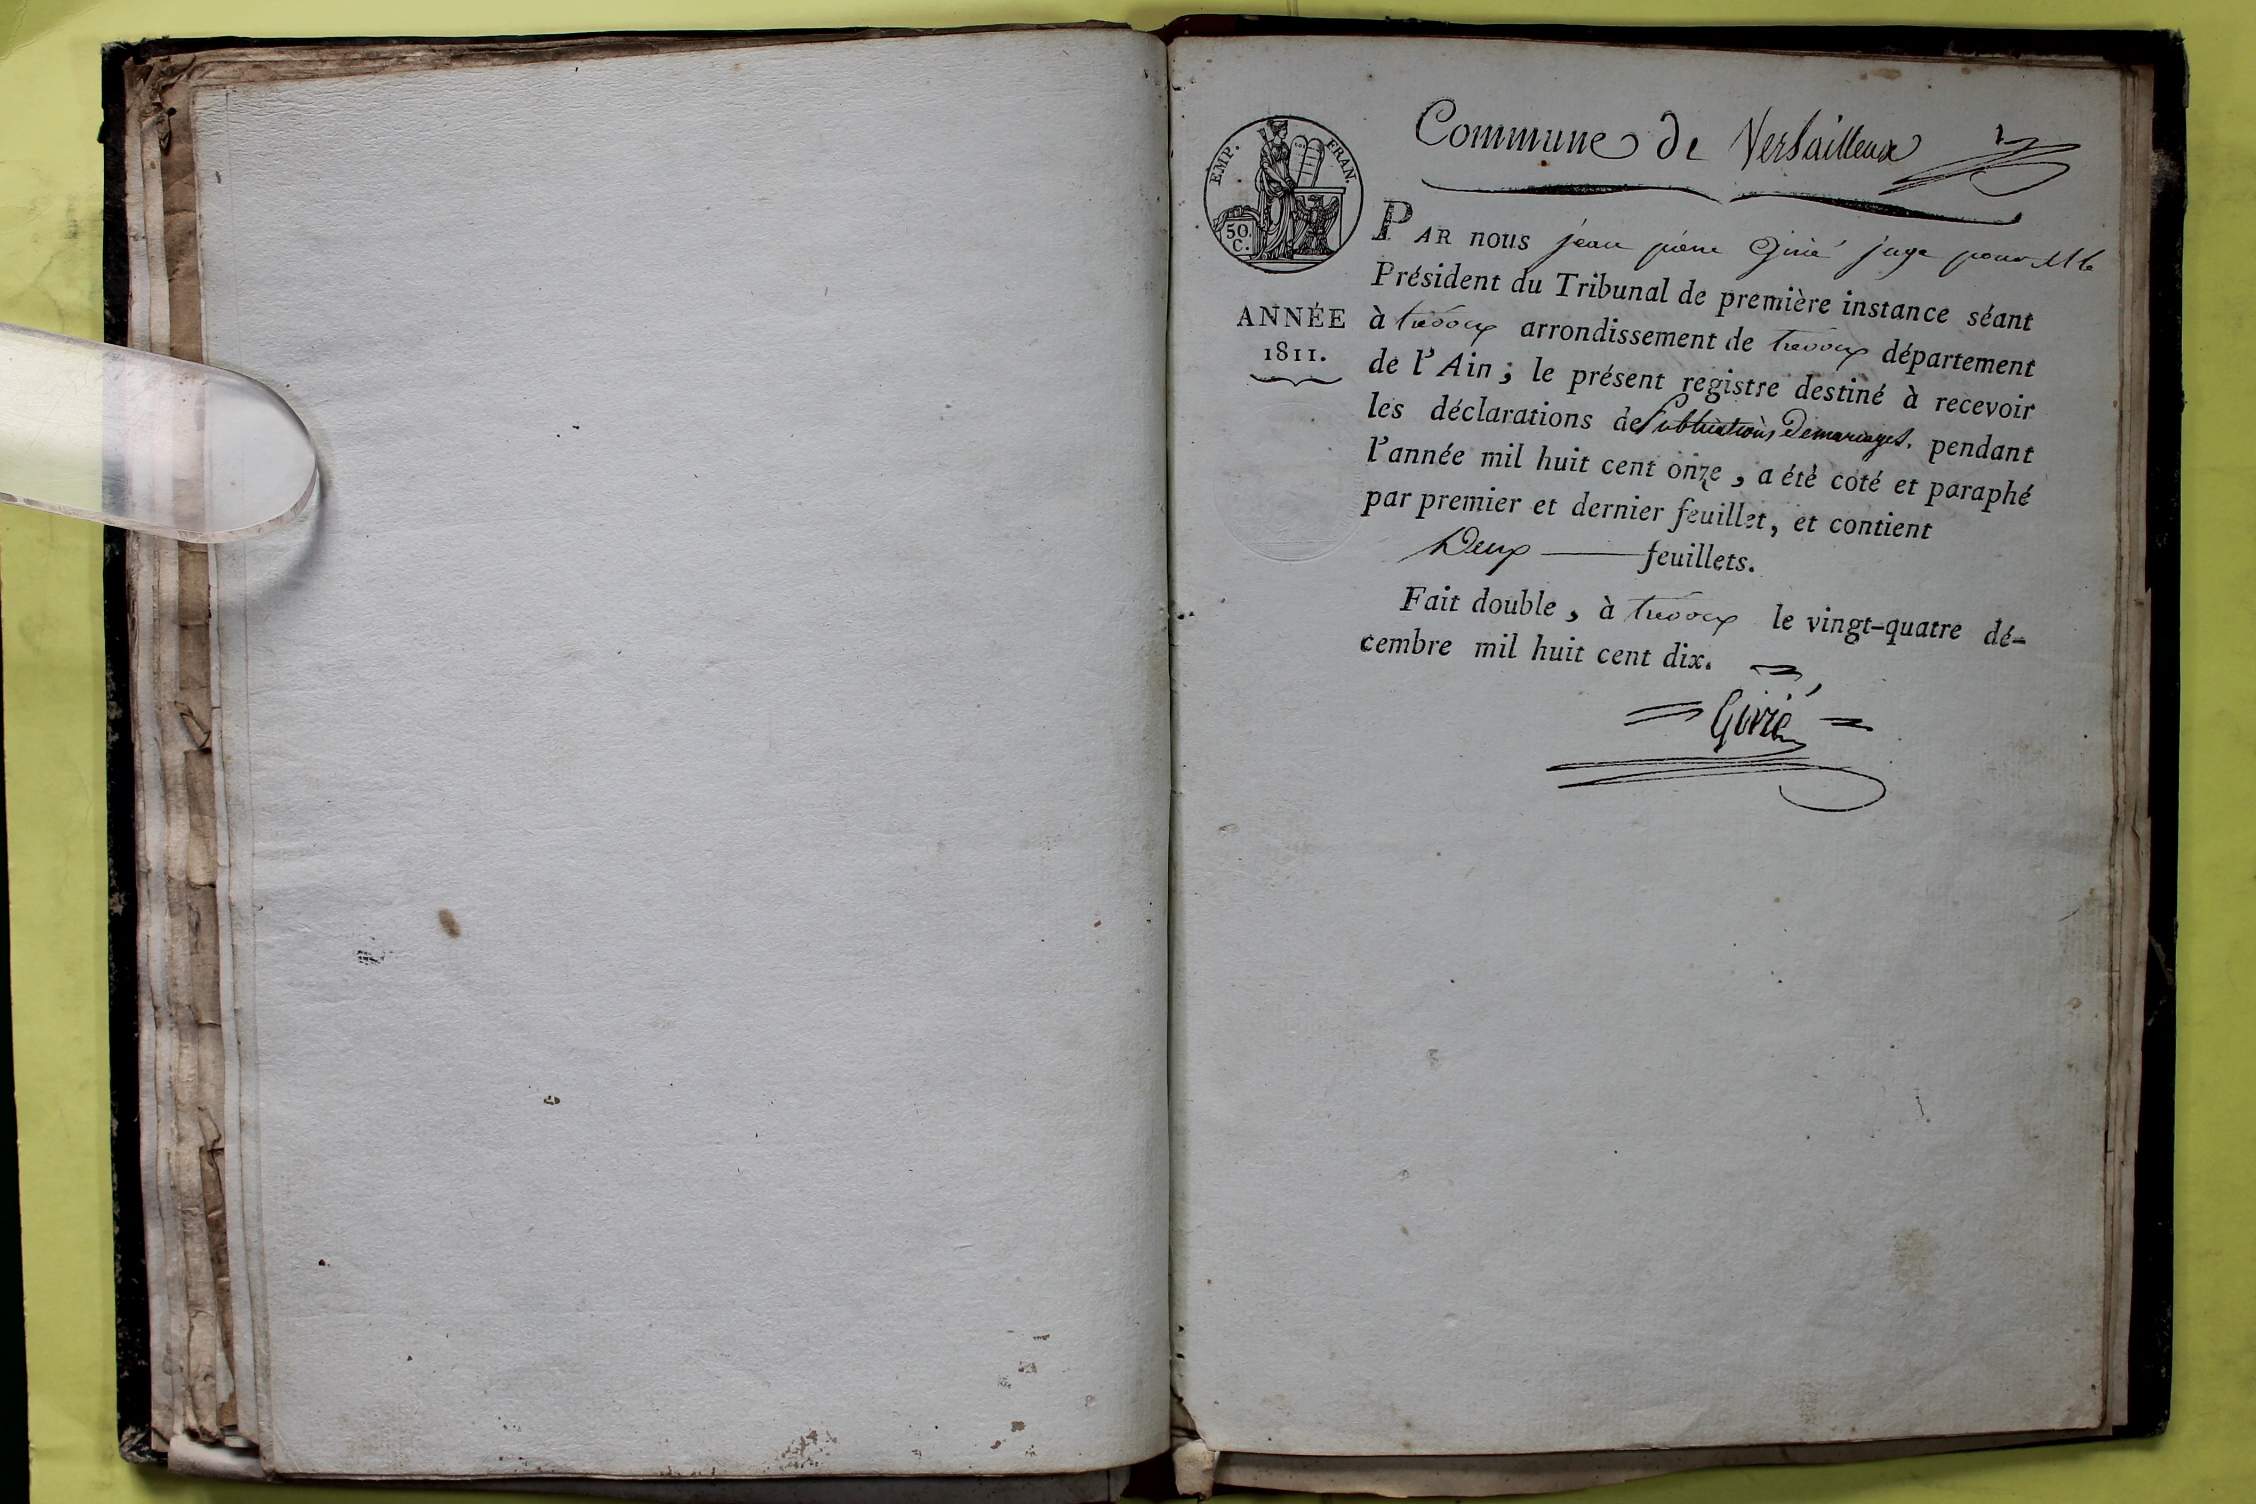 Commune de Versailleux
EMP. FRAN.
50.
C.
PAR nous jean pierre Girié juge pour M le
Président du Tribunal de première instance séant
ANNÉE
1811.
à trévoux arrondissement de trévoux département
de l'Ain ; le présent registre destiné à recevoir
les déclarations de Publications De mariages. pendant
l'année mil huit cent onze , a été coté et paraphé
par premier et dernier feuillet, et contient
Deux feuillets.
Fait double , à trévoux le vingt-quatre dé-
cembre mil huit cent dix.
Girié